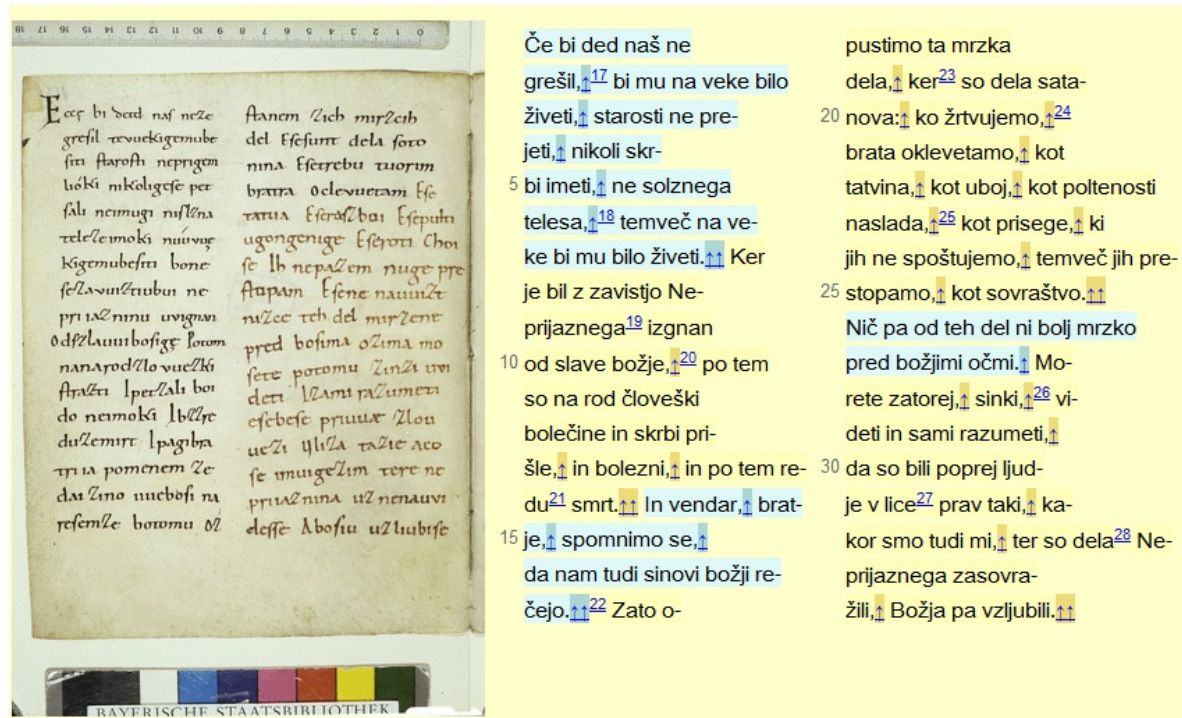 18 17 16 15 14 13 12 11 10 9 8 7 6 5 4 3 2 1 0
Eccę bi detd naſ neze
greſil tevuekigemube
ſiti ſtaroſti neprigem
lióki nikoligeſe pet
ſali neimugi niſlzna
telezeimoki nuúvuę
kigemubeſiti bone
ſezavuiztiubui ne
priiazninu uvignan
Odſzlauuiboſigę Potom
nanarodzlovuezki
ſtrazti Ipetzali boi
do neimoki Ibzzre
duzemirt Ipagibra
triia pomenem ze
dai zino uueboſi na
reſemze botomu oz
ſtanem zich mirzcih
del Eſeſunt dela ſoto
nina Eſetrebu tuorim
bratra Oclevuetam Eſe
tatua Eſerazboi Eſepulti
ugongenige Eſeroti Choi
ſe Ih nepazem nuge pre
ſtupam Eſene nauuizt
nizce teh del mirzene
pred boſima ozima mo
ſete potomu zinzi uvi
deti Izami razumeti
eſebeſe priuuæ zlou
uezi Uliza tazie aco
ſe imuigezim tere ne
priiaznina uznenauvi
deſſe Aboſiu uzliubiſe
BAYERISCHE STAATSBIBLIOTHEK
Če bi ded naš ne
grešil,↑17 bi mu na veke bilo
živeti,↑ starosti ne pre-
jeti,↑ nikoli skr-
5 bi imeti,↑ ne solznega
telesa,↑18 temveč na ve-
ke bi mu bilo živeti.↑↑ Ker
je bil z zavistjo Ne-
prijaznega19 izgnan
10 od slave božje,↑20 po tem
so na rod človeški
bolečine in skrbi pri-
šle,↑ in bolezni,↑ in po tem re-
du21 smrt.↑↑ In vendar,↑ brat-
15 je,↑ spomnimo se,↑
da nam tudi sinovi božji re-
čejo.↑↑22 Zato o-
pustimo ta mrzka
dela,↑ ker23 so dela sata-
20 nova:↑ ko žrtvujemo,↑24
brata oklevetamo,↑ kot
tatvina,↑ kot uboj,↑ kot poltenosti
naslada,↑25 kot prisege,↑ ki
jih ne spoštujemo,↑ temveč jih pre-
25 stopamo,↑ kot sovraštvo.↑↑
Nič pa od teh del ni bolj mrzko
pred božjimi očmi.↑ Mo-
rete zatorej,↑ sinki,↑26 vi-
deti in sami razumeti,↑
30 da so bili poprej ljud-
je v lice27 prav taki,↑ ka-
kor smo tudi mi,↑ ter so dela28 Ne-
prijaznega zasovra-
žili,↑ Božja pa vzljubili.↑↑